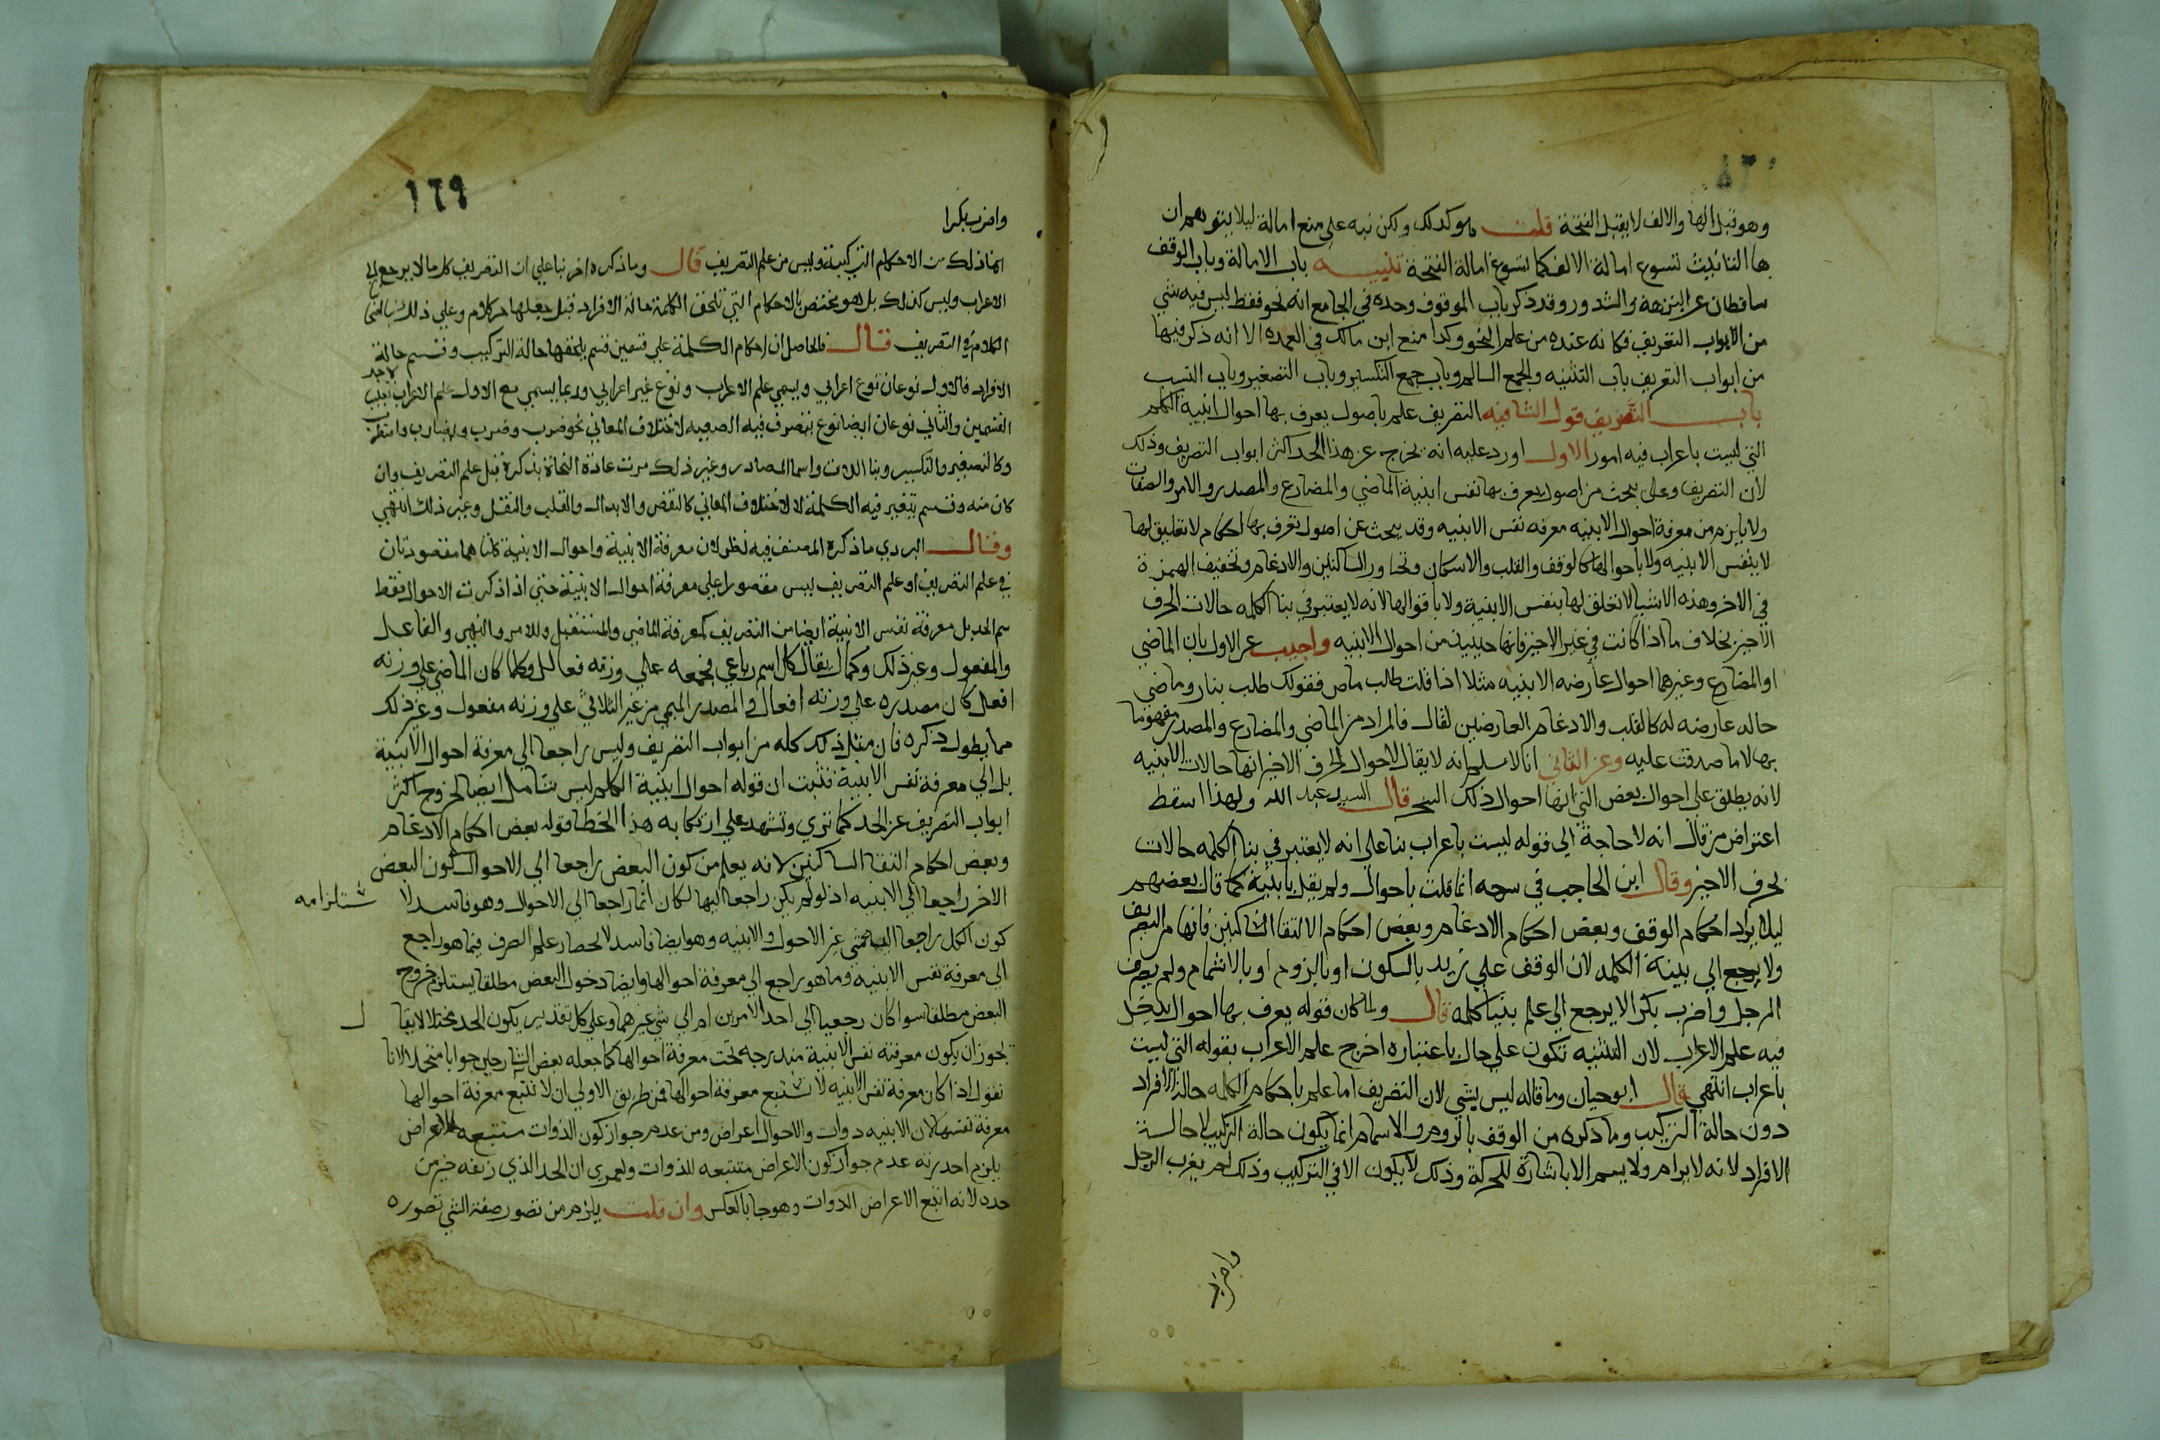 وهو قبل الها والالف لا يقبل الفتحة قلت هو كذلك ولكن نبه على منع امالة ليلا يتوهم ان
ها التانيث تسوغ امالة الالف كما تسوغ امالة الفتحة تنبيه باب الامالة وباب الوقف
ساقطان من النزهة والشذور وقد ذكر باب الموقوف وحده في الجامع انه نحو فقط ليس فيه شي
من الابواب التصريف فكانه عنده من علم النحو وكذا صنع ابن مالك في العمده الا انه ذكر فيها
من ابواب التصريف باب التثنيه والجمع السالم وباب جمع التكسير وباب التصغير وباب النسب
باب التصريف قول الشافيه التصريف علم باصول يعرف بها احوال ابنية الكلم
التي ليست باعراب فيه امور الاول اورد عليه انه يخرج عن هذا الحد اكثر ابواب التصريف وذلك
لان التصريف وعلى يبحث من اصول يعرف بها نفس ابنية الماضي والمضارع والمصدر والامر والصفات
ولا يلزم من معرفة احوال الابنيه معرفه نفس الابنيه وقد يبحث عن اصول تعرف بها احكام لا تعلق لها
لا بنفس الابنيه ولا باحوالها كالوقف والقلب والاسكان وتجاور الساكنين والادغام وتخفيف الهمزة
في الاخر وهذه الاشيا لا تعلق لها بنفس الابنية ولا باقوالها لانه لا يعتبر في بنا الكلمه حالات الحرف
الاخير بخلاف ما اذا كانت في غير الاخير فانها حينيذ من احوال الابنيه واجيب عن الاول بان الماضي
او المضارع وغيرهما احوال عارضه الابنيه مثلا اذا قلت طالب ماض فقولك طلب بنا وماضي
حاله عارضه له كالقلب والادغام العارضين لقال فالمراد من الماضي والمضارع والمصدر مفهوما
بها لا ما صدقت عليه وعن الثاني انا لا نسلم انه لا يقال لاحوال الحرف الاخير انها حالات الابنيه
لانه يطلق على احوال بعض التي انها احوال ذلك الشي قال السيد عبد الله ولهذا سقط
اعتراض من قال انه لا حاجة الى قوله ليست باعراب بنا على انه لا يعتبر في بنا الكلمه حالات
الحرف الاخير وقال ابن الحاجب في شرحه انما قلت باحوال ولم يقل بابنية كما قال بعضهم
ليلا يراد احكام الوقف وبعض احكام الادغام وبعض احكام الالتقا الساكنين فانها من التصريف
ولا يرجع الى بنية الكلمه لان الوقف على زيد بالسكون او بالروم او بالاشمام ولم يضرب
الرجل واضرب بكرا لا يرجع الى علم بنيا كلمه قال ولما كان قوله يعرف بها احوال يدخل
فيه علم الاعراب لان التثنيه تكون على حال باعتباره اخرج علم الاعراب بقوله التي ليست
باعراب انتهي قال ابو حيان وما قاله ليس بشي لان التصريف اما علم باحكام الكلمه حالة الافراد
دون حالة التركيب وما ذكره من الوقف بالروم والاشمام انما يكون حالة التركيب لا حالة
الافراد لانه لا يرام ولا يشم الا باشارة للحركة وذلك لا يكون الا في التركيب وذلك لم يضرب الرجل
واضرب
١٦٩
واضرب بكرا
انما ذلك من الاحكام التركيبية وليس من علم التصريف قال وما ذكره اخرنا على ان التصريف كل ما لا يرجع الى
الاعراب وليس كذلك بل هو مختص بالاحكام التي تلحق الكلمة حالة الافراد قبل جعلها جز كلام وعلى ذلك
الكلام في التصريف قال فالحاصل ان احكام الكلمة على قسمين قسم يلحقها حالة التركيب وقسم حالة
الافراد فالاول نوعان نوع اعرابي ويسمي علم الاعراب ونوع غير اعرابي وربما يسمي مع الاول علم
القسمين والثاني نوعان ايضا نوع تنصرف فيه الصيغه لاختلاف المعاني نحو ضرب وضرب وضارب واضطرب
وكالتصغير والتكسير وبنا الالات واسما المصادر وغير ذلك جرت عادة النحاة بذكره قبل علم التصريف وان
كان منه وقسم يتغير فيه الكلمة لا لاختلاف المعاني كالنقص والابدال والقلب والنقل وغير ذلك انتهي
وقال اليزدي ما ذكره المصنف فيه نظر لان معرفة الابنية واحوال الابنية كلتاهما مقصودتان
في علم التصريف او علم التصريف ليس مقصورا على معرفة احوال الابنية حتي اذا ذكرت الاحوال فقط
تم الحد بل معرفة نفس الابنية ايضا من التصريف كمعرفة الماضي والمستقبل والامر والنهي والفاعل
والمفعول وغير ذلك وكما يقال كل اسم رباعي فجمعه على وزنه فعالل وكلما كان الماضي على وزنه
افعل كان مصدره على وزنه افعال والمصدر الميمي من غير الثلاثي على وزنه مفعول وغير ذلك
مما يطول ذكره فان مثل ذلك كله من ابواب التصريف وليس راجعا الى معرفة احوال الابنية
بل الى معرفة نفس الابنية فثبت ان قوله احوال ابنية الكلم ليس شاملا ايضا لخروج اكثر
ابواب التصريف عن الحد كما تري وتشهد على ارتكابه هذا الخطا قوله بعض احكام الادغام
وبعض احكام التقا الساكنين لانه يعلم من كون البعض راجعا الى الاحوال كون البعض
الاخر راجعا الى الابنيه اذ لو لم يكن راجعا اليها لكان انما راجعا الى الاحوال وهو فاسد لا ستلزامه
كون الكل راجعا الى شي غير الاحوال والابنيه وهو ايضا فاسد لانحصار علم الصرف فيما هو راجع
الى معرفة نفس الابنيه وما هو راجع الى معرفة احوالها وايضا دخول البعض مطلقا يستلزم خروج
البعض مطلقا سوا كان رجعيا الى احد الامرين ام الى شي غيرهما وعلى كل تقدير يكون الحد مختلا لا يقال
يجوز ان يكون معرفته نفس الابنية مندرجه تحت معرفة احوالها كما جعله بعض الشارحين جوابا منحلا لانا
نقول اذا كان معرفة نفس الابنيه لا تستتبع معرفة احوالها فمن طريق الاولى ان لا تتبع معرفة احوالها
معرفة نفسها لان الابنيه ذوات والاحوال اعراض ومن عدم جواز كون الذوات مستتبعه للاعراض
يلزم احد رته عدم جواز كون الاعراض متتبعه للذوات ولعمري ان الحد الذي زيفه خير من
حده لانه اتبع الاعراض الذوات وهو جا بالعكس وان قلت يلزم من تصور صفة الشي تصوره